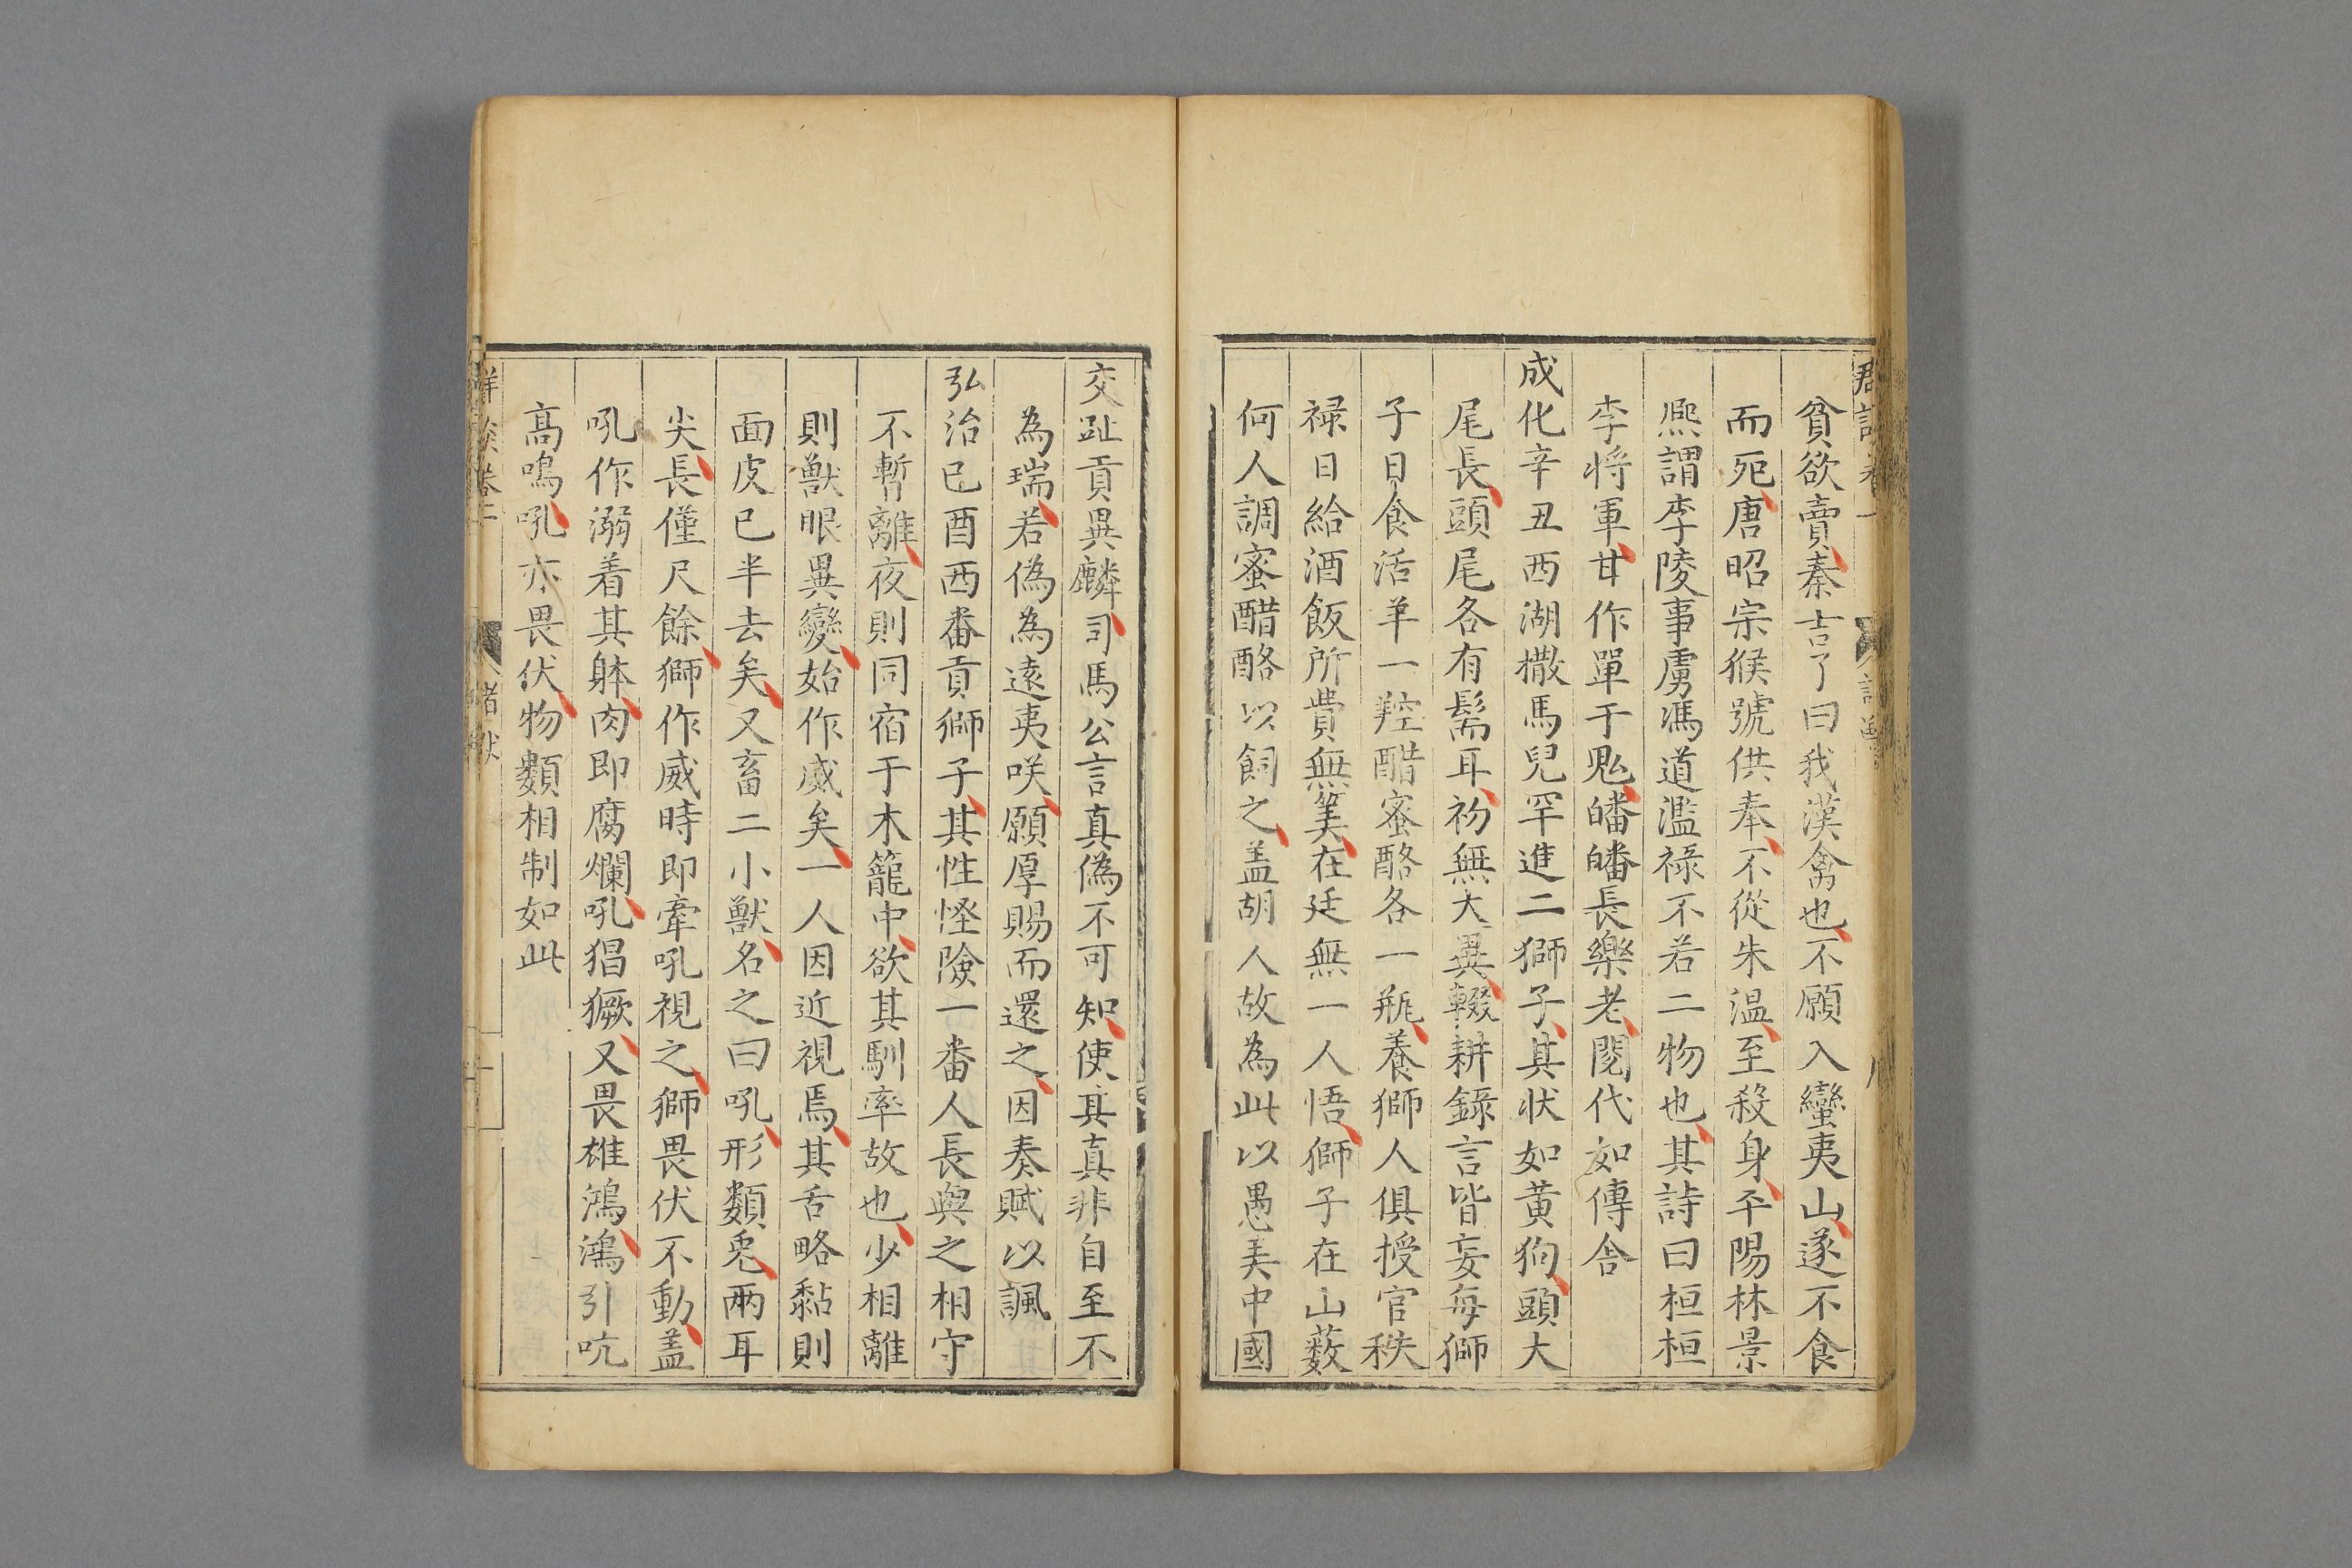 貧欲賣秦吉了曰我漢禽也不願入蠻夷山遂不食
而死唐昭宗猴號供奉不從朱温至殺身平陽林景
熈謂李陵事虜馮道濫禄不若二物也其詩曰桓桓
李将軍甘作單于鬼皤皤長樂老閱代如傳舍
成化辛丑西湖撒馬兒罕進二獅子其状如黄狗頭大
尾長頭尾各有髯耳初無大異輟耕錄言皆妄每獅
子日食活羊一羫醋蜜酪各一瓶養獅人俱授官秩
禄日給酒飯所費無筭在廷無一人悟獅子在山藪
何人調蜜醋酪以飼之盖胡人故為此以愚美中國
交趾貢異麟司馬公言真偽不可知使其真非自至不
為瑞若偽為遠夷咲願厚賜而還之因奏賦以諷
弘治已酉西番貢獅子其性怪險一番人長與之相守
不暫離夜則同宿于木籠中欲其馴率故也少相離
則獸眼異變始作威矣一人因近視焉其舌略黏則
面皮已半去矣又畜二小獸名之曰吼形類兎兩耳
尖長僅尺餘獅作威時即牽吼視之獅畏伏不動盖
吼作溺着其躰肉即腐爛吼猖獗又畏雄鴻鴻引吭
高鳴吼亦畏伏物類相制如此